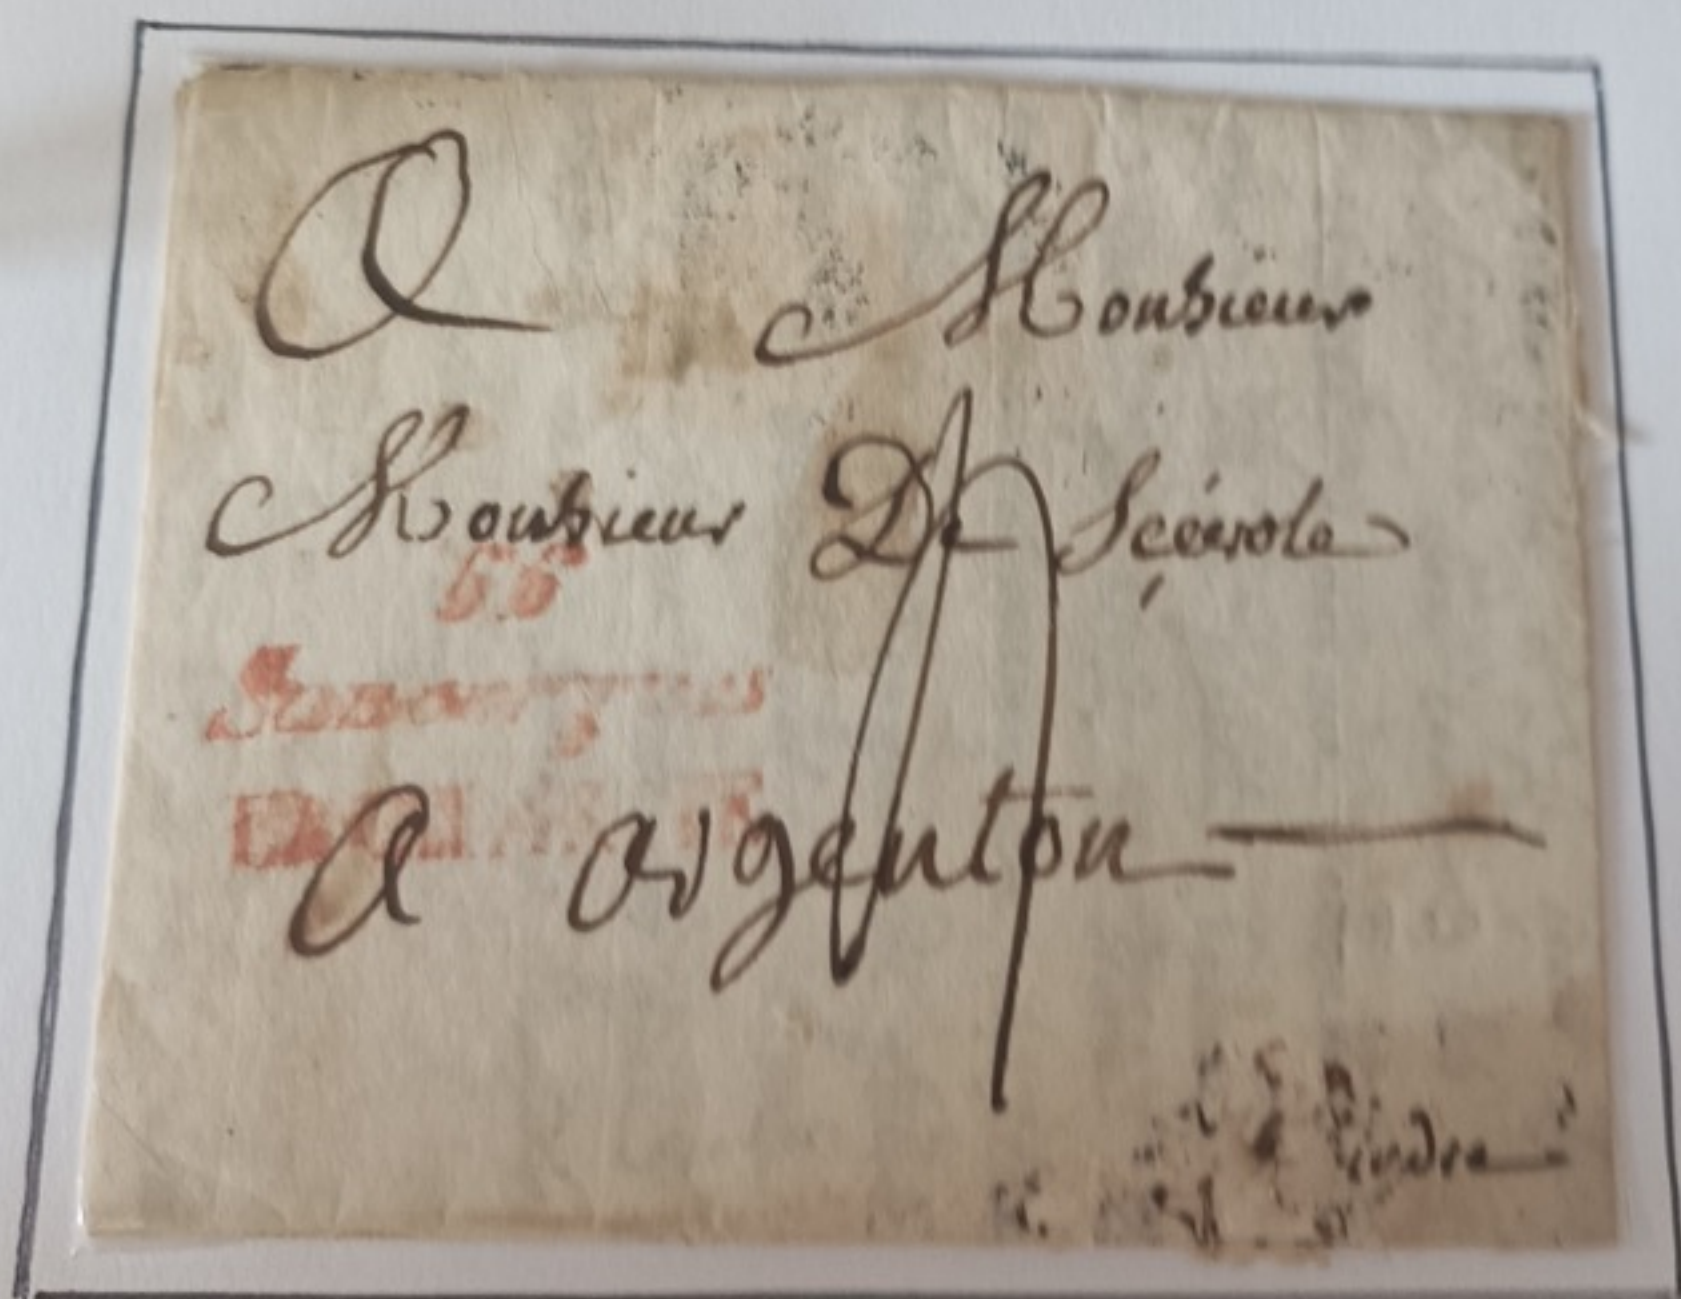 A Monsieur
Monsieur De Scévole
66
a argenton
indre